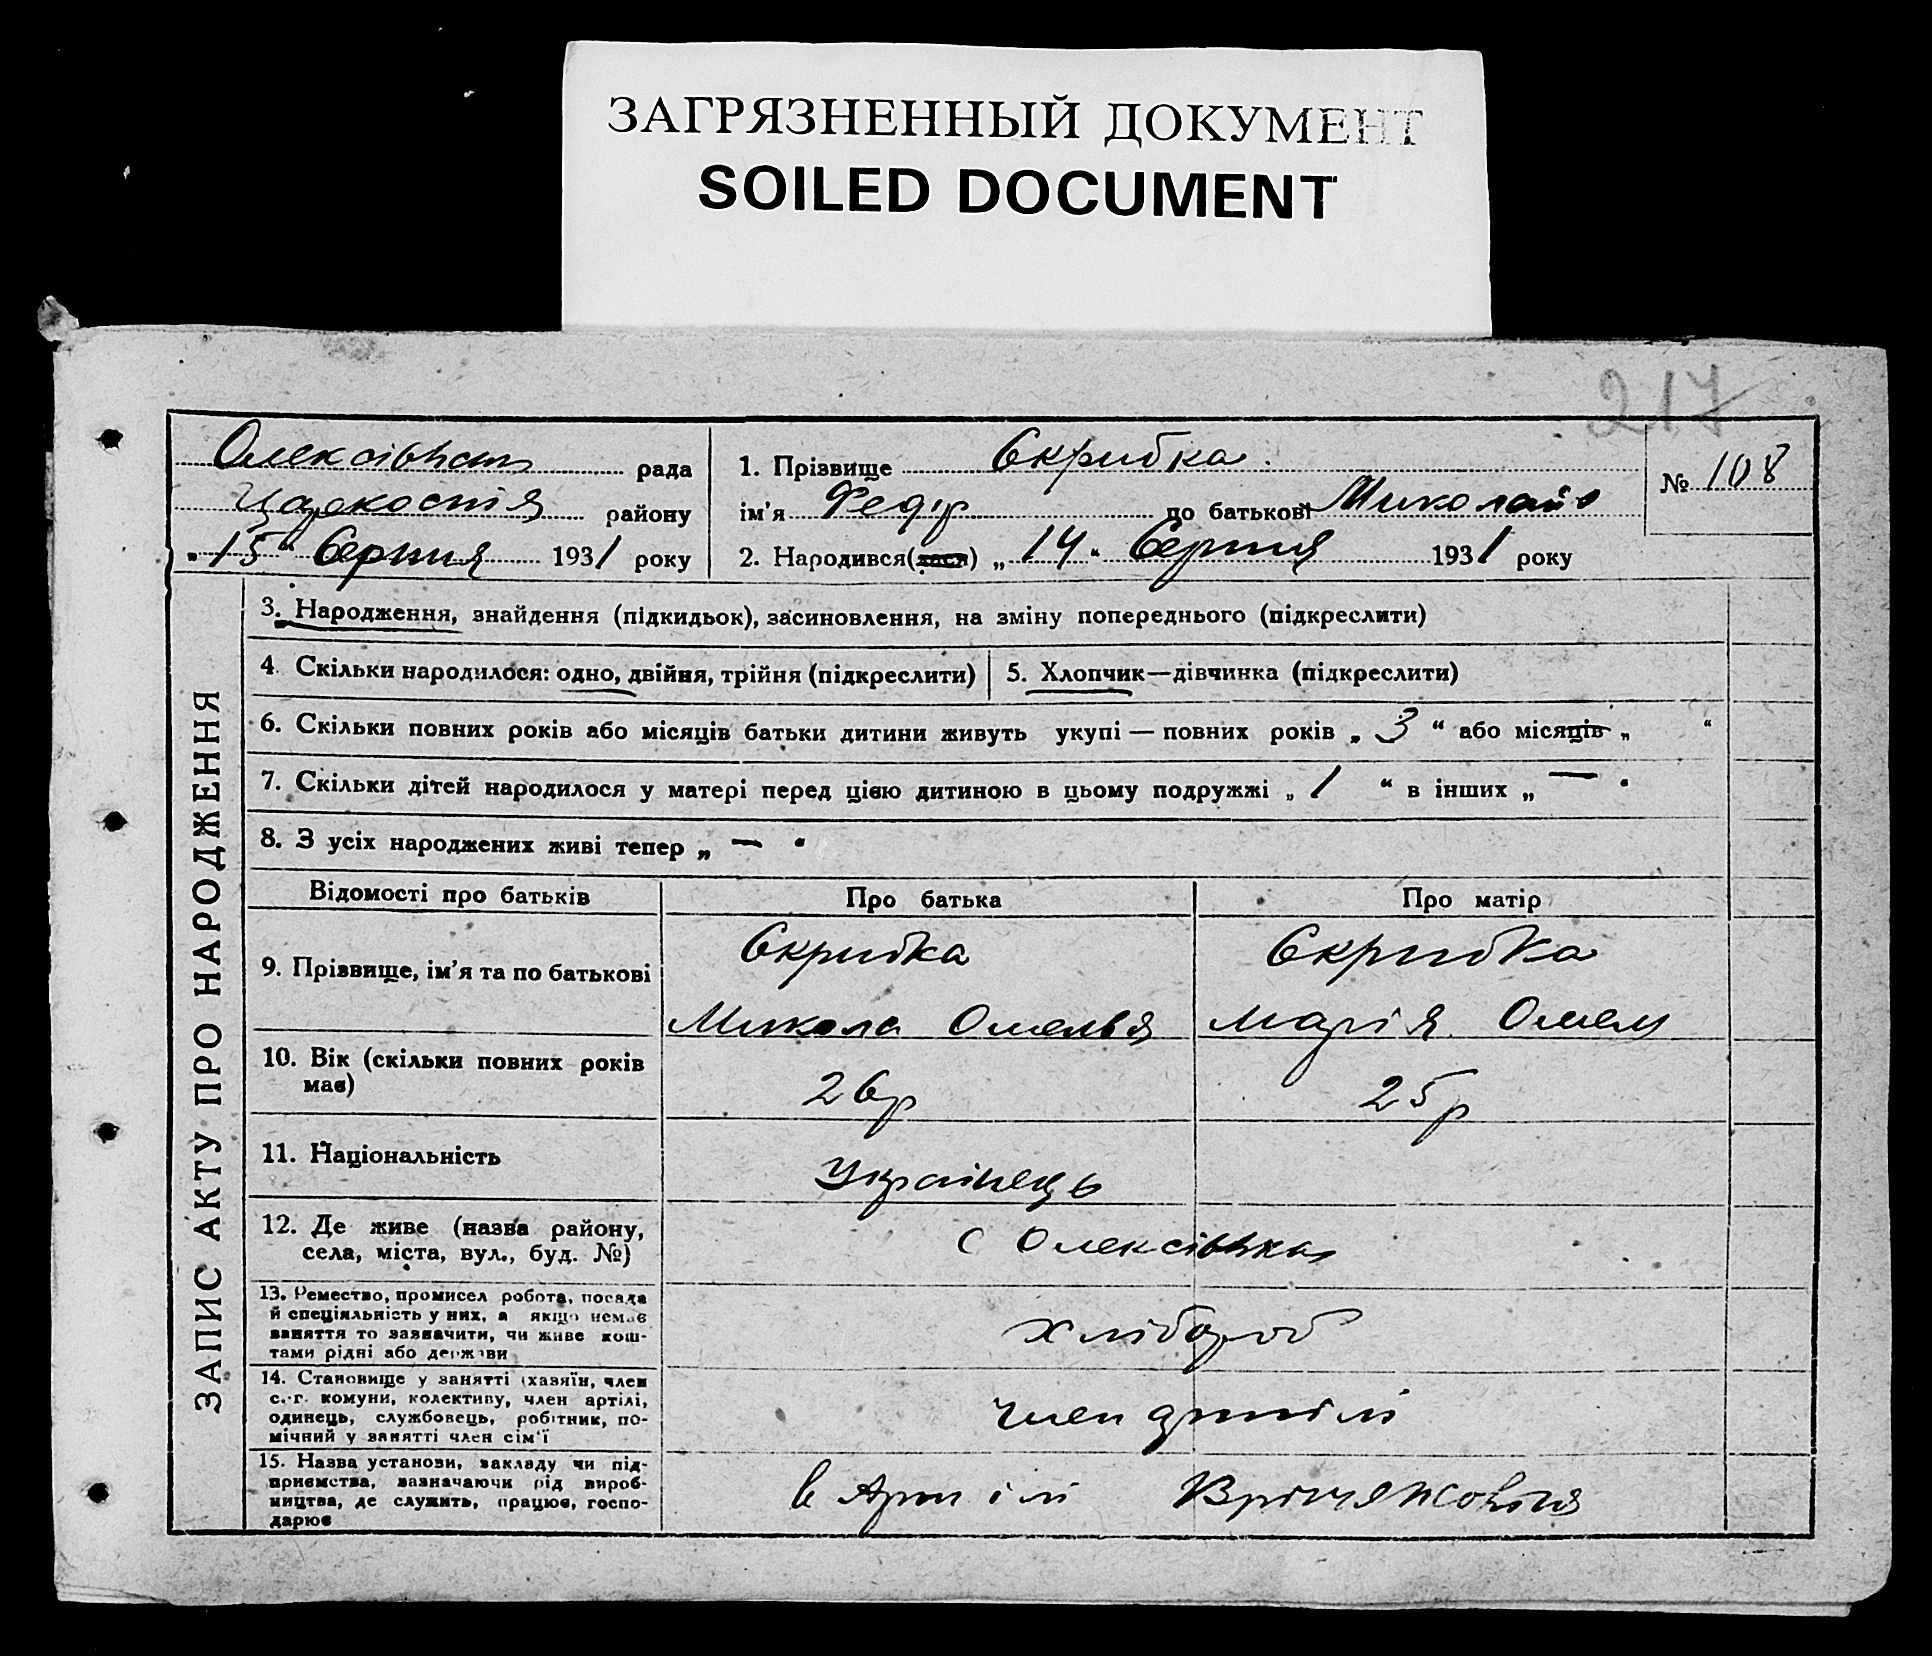 ЗАГРЯЗНЕННЫЙ ДОКУМЕНТ
SOILED DOCUMENT
217
Олексівська рада
району
„15" Серпня 1931 року
1. Прізвище Скрибка.
ім'я Федір по батькові Миколайо
2. Народився(лася) „14" Серпня 1931 року
№ 108
ЗАПИС АКТУ ПРО НАРОДЖЕННЯ
3. Народження, знайдення (підкидьок), засиновлення, на зміну попереднього (підкреслити)
4 Скільки народилося: одно, двійня, трійня (підкреслити)
5. Хлопчик—дівчинка (підкреслити)
6. Скільки повних років або місяців батьки дитини живуть укупі — повних років „ 3 " або місяців „ "
7. Скільки дітей народилося у матері перед цією дитиною в цьому подружжі „ 1 " в інших „ — "
8. З усіх народжених живі тепер „ — "
Відомості про батьків
Про батька
Про матір
9. Прізвище, ім'я та по батькові
Скрибка
Микола Омелья
Скрибка
Марія Омел
10. Вік (скільки повних років
має)
26р
25р
11. Національність
Українець
12. Де живе (назва району,
села, міста, вул., буд. №)
с Олексівка
13. Ремество, промисел робота, посада
й спеціяльність у них, а якщо немає
заняття то зазначити, чи живе кош-
тами рідні або держави
хлібороб
14. Становище у занятті (хазяїн, член
с.-г. комуни, колективу, член артілі,
одинець, службовець, робітник, по-
мічний у занятті член сім'ї
член артілі
15. Назва установи, закладу чи під-
приємства, зазначаючи рід вироб-
ництва, де служить, працює, госпо-
дарює
в Артілі